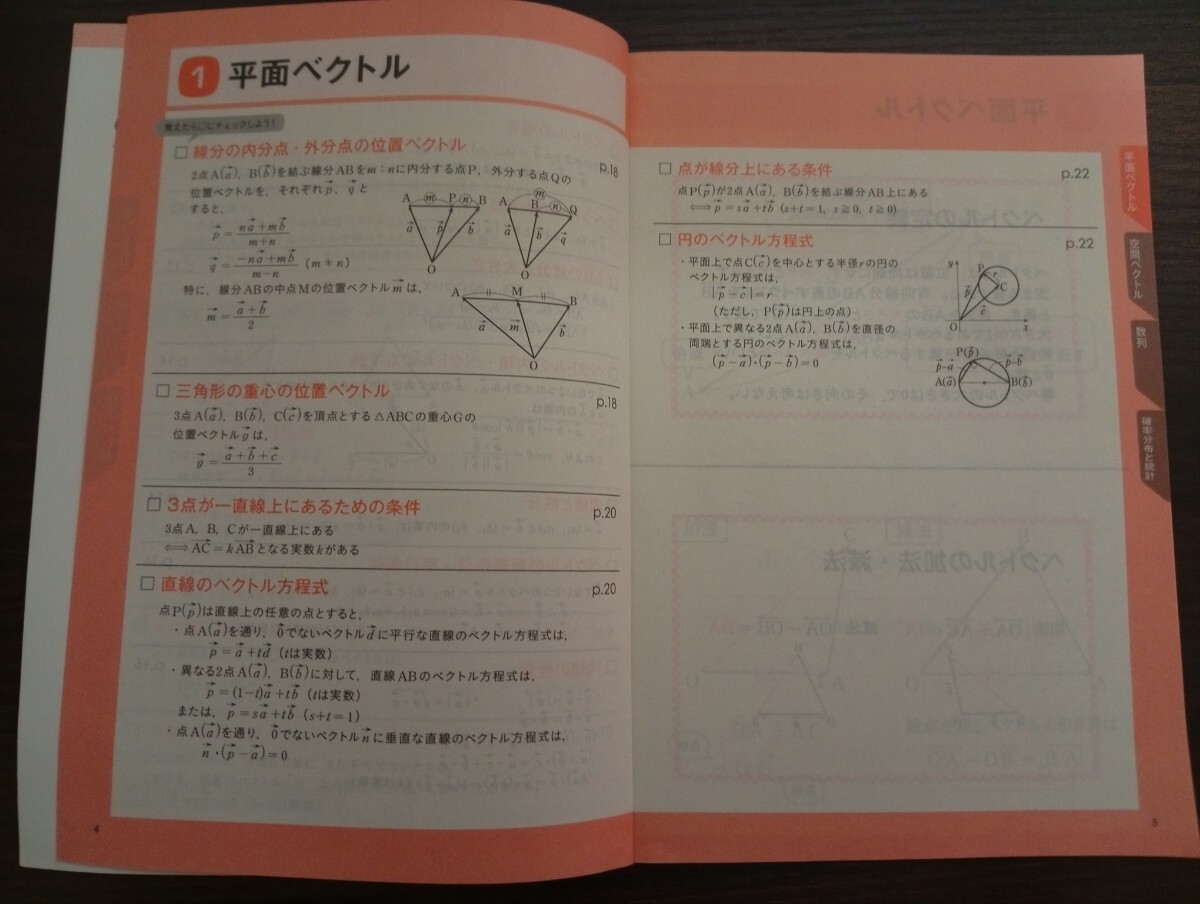 1 平面ベクトル
覚えたら□にチェックしよう！
□ 線分の内分点・外分点の位置ベクトル p.18
2点A(a→), B(b→)を結ぶ線分ABをm：nに内分する点P, 外分する点Qの
位置ベクトルを, それぞれp→, q→と
すると,
p→＝(na→＋mb→)/(m＋n)
q→＝(−na→＋mb→)/(m−n) (m≠n)
A m P n B
a→ p→ b→
O
m
A B n Q
a→ b→ q→
O
特に, 線分ABの中点Mの位置ベクトルm→は,
m→＝(a→＋b→)/2
A M B
a→ m→ b→
O
□ 三角形の重心の位置ベクトル p.18
3点A(a→), B(b→), C(c→)を頂点とする△ABCの重心Gの
位置ベクトルg→は,
g→＝(a→＋b→＋c→)/3
□ 3点が一直線上にあるための条件 p.20
3点A, B, Cが一直線上にある
⟺AC→＝kAB→となる実数kがある
□ 直線のベクトル方程式 p.20
点P(p→)は直線上の任意の点とすると,
・点A(a→)を通り, 0→でないベクトルd→に平行な直線のベクトル方程式は,
p→＝a→＋td→ (tは実数)
・異なる2点A(a→), B(b→)に対して, 直線ABのベクトル方程式は,
p→＝(1−t)a→＋tb→ (tは実数)
または, p→＝sa→＋tb→ (s＋t＝1)
・点A(a→)を通り, 0→でないベクトルn→に垂直な直線のベクトル方程式は,
n→・(p→−a→)＝0
4
□ 点が線分上にある条件 p.22
点P(p→)が2点A(a→), B(b→)を結ぶ線分AB上にある
⟺p→＝sa→＋tb→ (s＋t＝1, s≧0, t≧0)
□ 円のベクトル方程式 p.22
・平面上で点C(c→)を中心とする半径rの円の
ベクトル方程式は,
|p→−c→|＝r
(ただし, P(p→)は円上の点)
y
P r C
p→ c→
O x
・平面上で異なる2点A(a→), B(b→)を直径の
両端とする円のベクトル方程式は,
(p→−a→)・(p→−b→)＝0
P(p→)
p→−a→ p→−b→
A(a→) B(b→)
平面ベクトル
空間ベクトル
数列
確率分布と統計
5